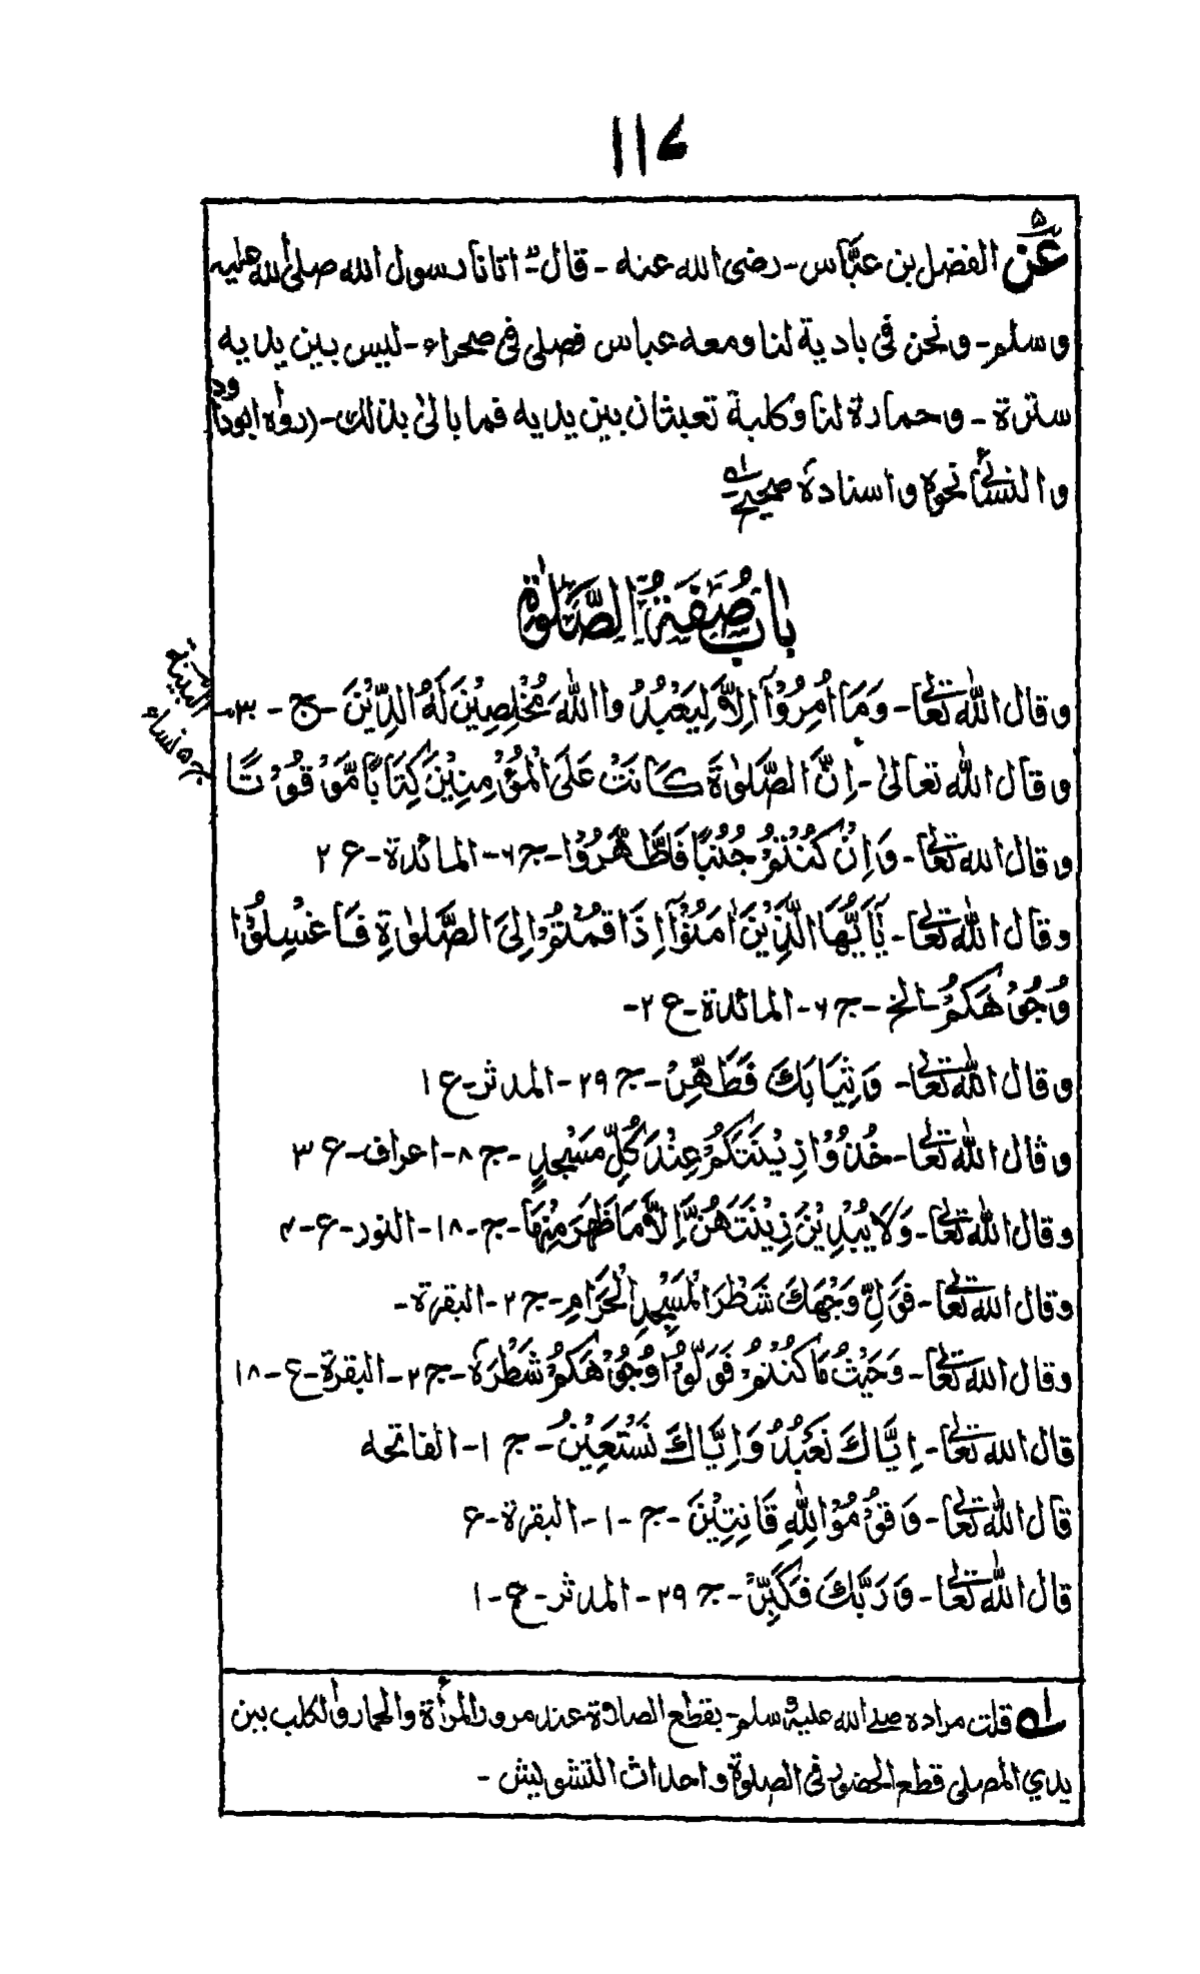 ۱۱۷
۵
عن الفضل بن عبّاس - رضی الله عنه - قال - اتانا رسول الله صلی الله علیه
وسلم - ونحن فی بادیة لنا ومعه عباس فصلی فی صحراء - لیس بین یدیه
سترة - وحمارة لنا وکلبة تعبثان بین یدیه فما بالیٰ بذلك - (رواه ابوداود
والنسائی نحوه واسناده صحیح - ۱ه
بَابُ صِفَةِ الصَّلوٰةِ
وقال الله تعالی - وَمَآ اُمِرُوْآ اِلَّا لِیَعْبُدُ وااللهَ مُخْلِصِیْنَ لَهُ الدِّیْنَ - ج - ۳۰ - البینة
وقال الله تعالیٰ - اِنَّ الصَّلوٰةَ کَانَتْ عَلَی الْمُؤْمِنِیْنَ کِتَابًا مَّوْقُوْتًا ج ۵ نساء
وقال الله تعالی - وَاِنْ کُنْتُمْ جُنُبًا فَاطَّهَّرُوْا - ج ۶ - المائدة - ع ۲
وقال الله تعالی - یٓاَیُّهَا الَّذِیْنَ اٰمَنُوْٓا اِذَا قُمْتُمْ اِلَی الصَّلوٰةِ فَاغْسِلُوْا
وُجُوْهَکُمْ - الخ - ج ۶ - المائدة - ع ۲ -
وقال الله تعالی - وَثِیَابَكَ فَطَهِّرْ - ج ۲۹ - المدثر - ع ۱
وقال الله تعالی - خُذُوْا زِیْنَتَکُمْ عِنْدَ کُلِّ مَسْجِدٍ - ج ۸ - اعراف - ع ۳
وقال الله تعالی - وَلَا یُبْدِیْنَ زِیْنَتَهُنَّ اِلَّا مَا ظَهَرَ مِنْهَا - ج - ۱۸ - النور - ع - ۴
وقال الله تعالی - فَوَلِّ وَجْهَكَ شَطْرَ الْمَسْجِدِ الْحَرَامِ - ج ۲ - البقرة -
وقال الله تعالی - وَحَیْثُ مَا کُنْتُمْ فَوَلُّوْا وُجُوْهَکُمْ شَطْرَهٗ - ج ۲ - البقرة - ع - ۱۸
قال الله تعالی - اِیَّاكَ نَعْبُدُ وَاِیَّاكَ نَسْتَعِیْنُ - ج ۱ - الفاتحه
قال الله تعالی - وَقُوْمُوْا لِلّٰهِ قَانِتِیْنَ - ج - ۱ - البقرة - ع
قال الله تعالی - وَرَبَّكَ فَکَبِّرْ - ج ۲۹ - المدثر - ع - ۱
۱ه قلت مراده صلی الله علیه وسلم - بقطع الصلوة عند مرور المرأة والحمار والکلب بین
یدي المصلی قطع الحضور فی الصلوة واحداث التشویش -